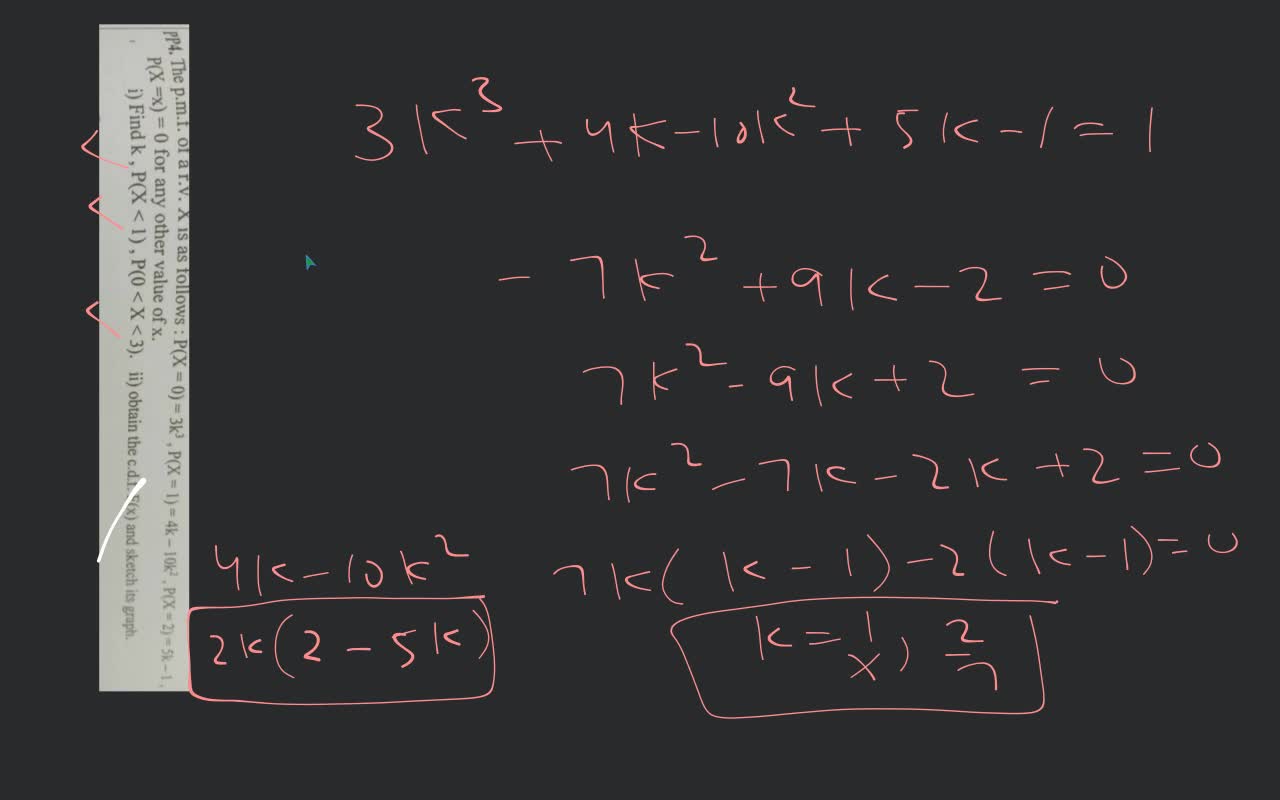 PP4. The p.m.f. of a r.v. X is as follows : P(X = 0) = 3k³ , P(X = 1) = 4k – 10k² , P(X = 2) = 5k – 1 ,
P(X =x) = 0 for any other value of x.
i) Find k , P(X < 1) , P(0 < X < 3). ii) obtain the c.d.f. F(x) and sketch its graph.
3k³ + 4k - 10k² + 5k - 1 = 1
- 7k² + 9k - 2 = 0
7k² - 9k + 2 = 0
7k² - 7k - 2k + 2 = 0
7k( k - 1) - 2(k - 1) = 0
k = 1, 2/7
x
4k - 10k²
2k(2 - 5k)